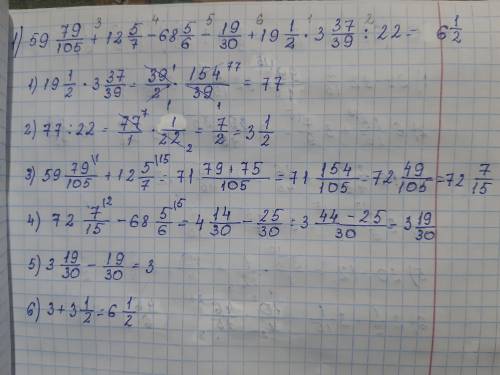 1) 59 79/105 + 12 5/7 - 68 5/6 - 19/30 + 19 1/2 · 3 37/39 : 22 = 6 1/2
1) 19 1/2 · 3 37/39 = 39/2 · 154/39 = 77
2) 77 : 22 = 77/1 · 1/22 = 7/2 = 3 1/2
3) 59 79/105 + 12 5/7 = 71 79+75/105 = 71 154/105 = 72 49/105 = 72 7/15
4) 72 7/15 - 68 5/6 = 4 14/30 - 25/30 = 3 44-25/30 = 3 19/30
5) 3 19/30 - 19/30 = 3
6) 3 + 3 1/2 = 6 1/2